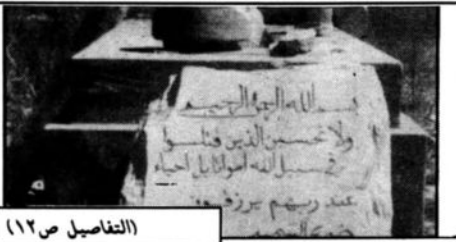 بسم الله الرحمن الرحيم
ولا تحسبن الذين قتلوا
في سبيل الله امواتا بل احياء
عند ربهم يرزقون
(التفاصيل ص١٢)